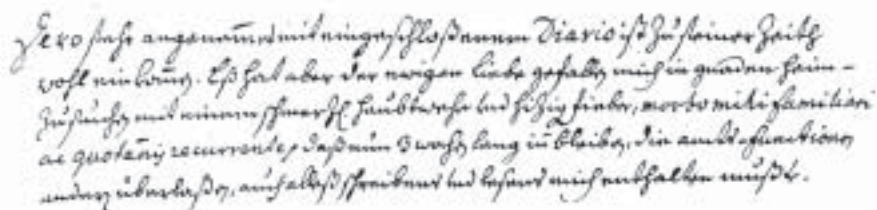 Dero sehr angenommes mit eingeschloßenem Diario ist zu seiner Zeith
wohl einkom̄en. Eß hat aber der ewigen Liebe gefallen mich in gnaden heim-
zusuchen mit einem schmerzl. Haubtwehe und hizig fieber, morbo mihi familiari
ac quotannis recurrente, daß nun 3 wochen lang in̄ bleiben, die ambts-functiones
andern überlaßen, auch alleß schreibens und lesens mich enthalten mußte.